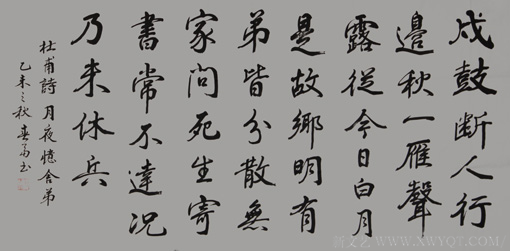 戍鼓断人行
邊秋一雁聲
露從今日白月
是故鄉明有
弟皆分散無
家問死生寄
書常不達况
乃未休兵
杜甫詩月夜憶舍弟
乙未之秋
新文艺